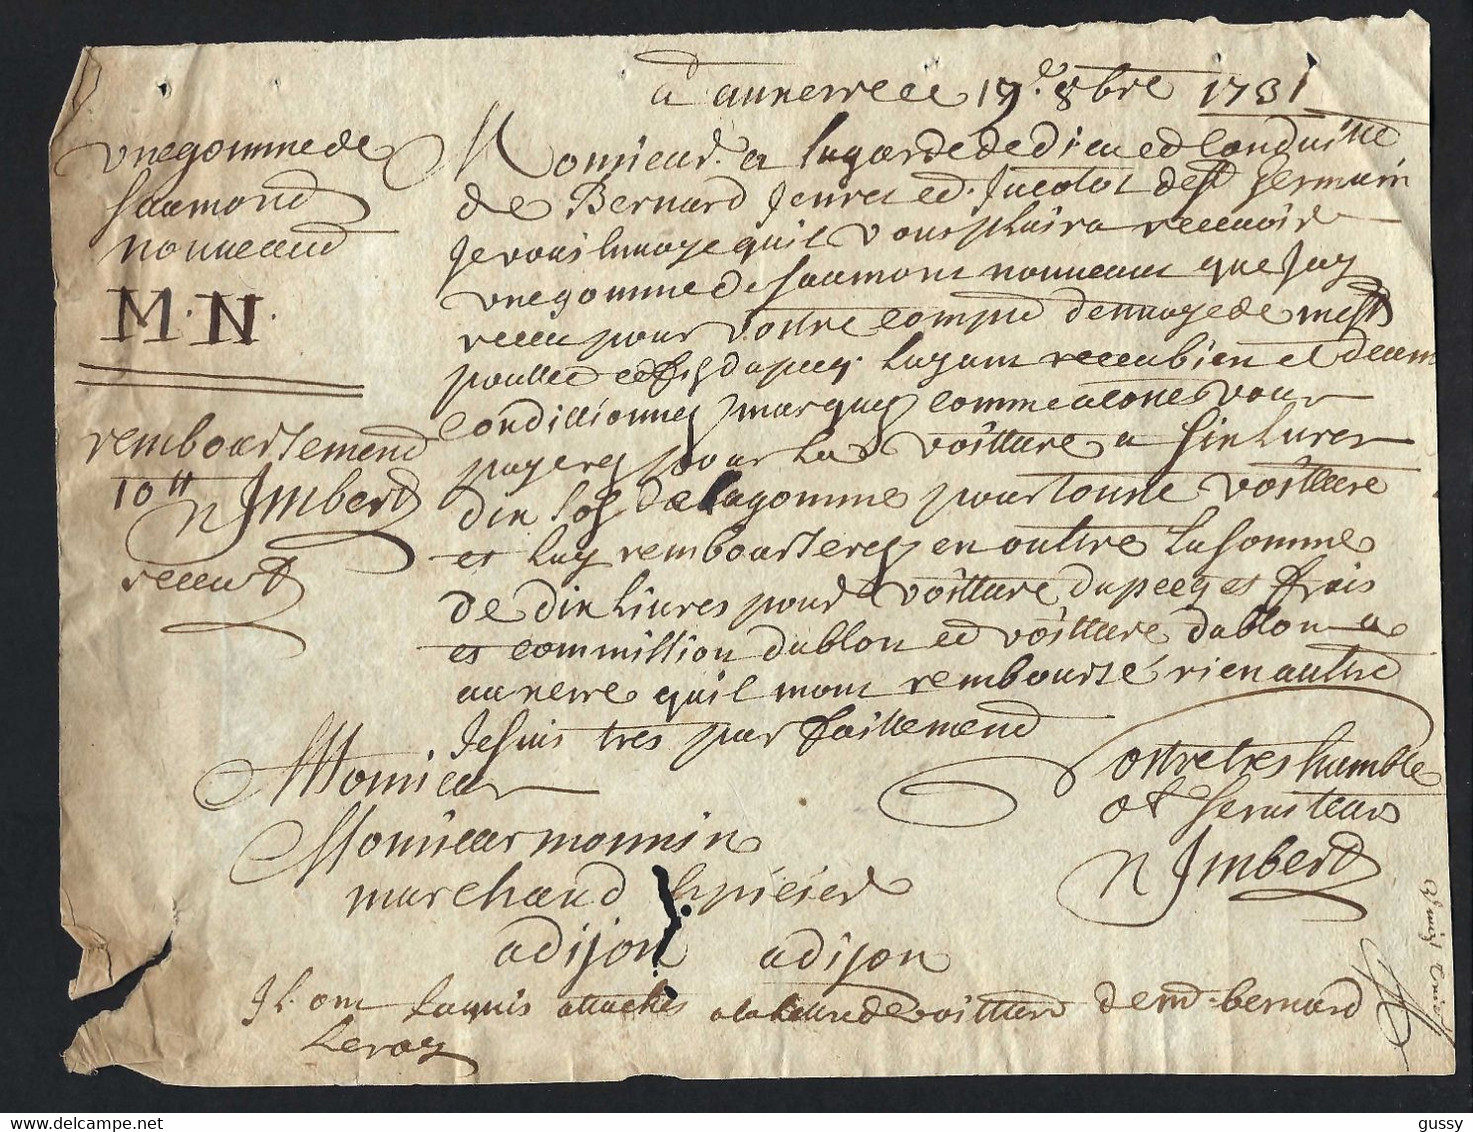 a aunerre ce 19.e 8bre 1731
vnegommede
saumond
nouueaud
M. N.
remboursement
10tt
n Jmbert
receut
Monsieur. a lagardededieu ed conduitte
de Bernard Jenret ed. Jacotot dest Germain
Je vous Enuoye quil vous plaira receuoir
vnegommede saumont nouueaux que Jay
receu pour vostre compte denuoyede mess
poullee ed fils dupecq Layant receu bien et deum
conditionnez marquez comme acosté vour
payerez pour La voitture a six Liures
dix sols de Lagomme pour toutte voitture
et Luy rembourserez en outtre Lasomme
de dix Liures pour voitture dupecq et frais
et commission dablon ed voitture dablon a
aunerre quil mont remboursé rien auttre
Jesuis tres parfaittement
Monsieur
vostre tres humble
et seruiteur
n Jmbert
Monsieur monnin
marchand Epicier
adijon adijon
Jl. ont Laquis attachés a la Lettre de voitture de md. bernard
Leroy
gussy